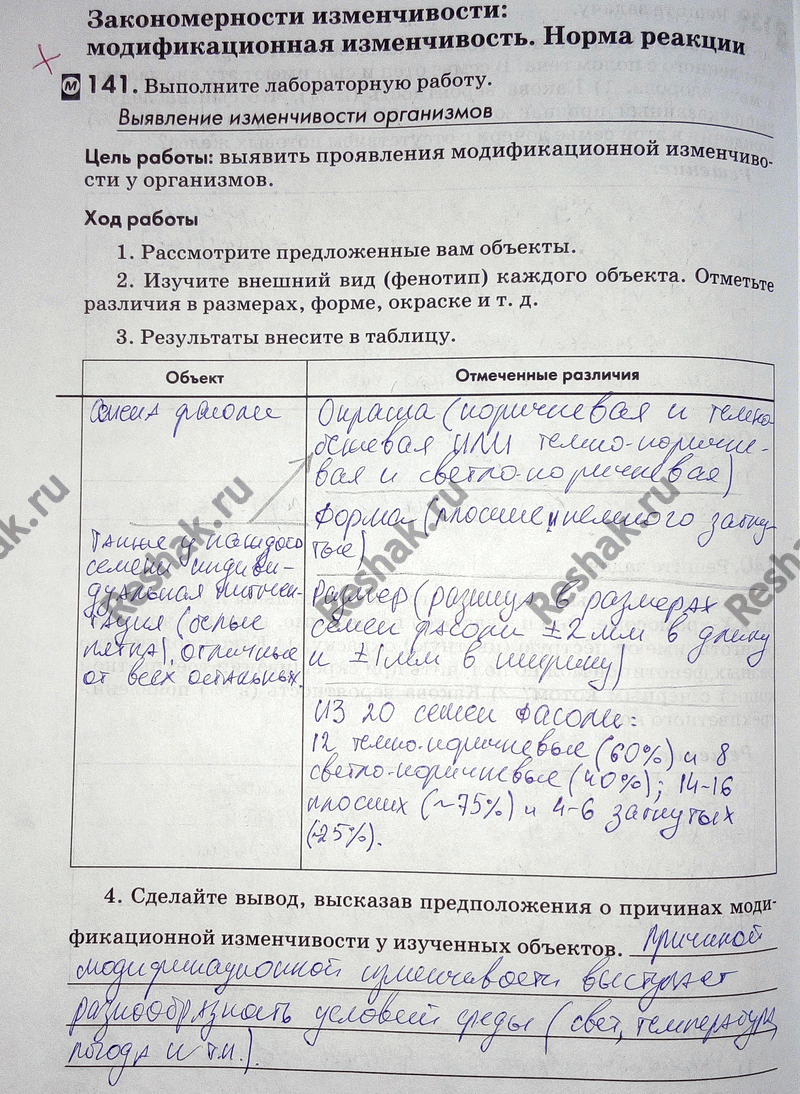 Закономерности изменчивости:
модификационная изменчивость. Норма реакции
М 141. Выполните лабораторную работу.
Выявление изменчивости организмов
Цель работы: выявить проявления модификационной изменчиво-
сти у организмов.
Ход работы
1. Рассмотрите предложенные вам объекты.
2. Изучите внешний вид (фенотип) каждого объекта. Отметьте
различия в размерах, форме, окраске и т. д.
3. Результаты внесите в таблицу.
Объект
Отмеченные различия
Семена фасоли
Также у каждого
семени индиви-
дуальная пигмен-
тация (белые
пятна), отличные
от всех остальных.
Окраска (коричневая и темно-
бежевая ИЛИ темно-коричне-
вая и светло-коричневая)
Форма (плоские и немного загну-
тые)
Размер (разница в размерах
семен фасоли ±2мм в длину
и ±1мм в ширину)
ИЗ 20 семен фасоли:
12 темно-коричневые (60%) и 8
светло-коричневые (40%); 14-16
плоских (~75%) и 4-6 загнутых
(~25%).
4. Сделайте вывод, высказав предположения о причинах моди-
фикационной изменчивости у изученных объектов. Причиной
модификационной изменчивости выступает
разнообразность условий среды (свет, температура,
погода и т.п.).
Reshak.ru
Reshak.ru
Reshak.ru
Reshak.ru
Reshak.ru